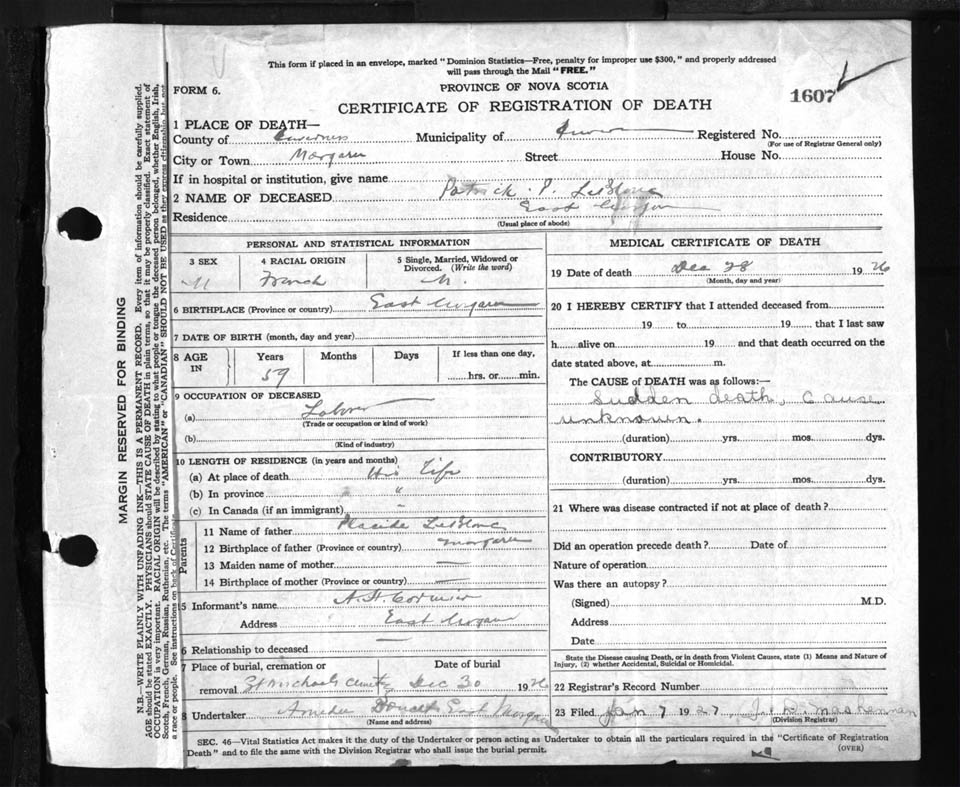 This form if placed in an envelope, marked "Dominion Statistics—Free, penalty for improper use $300," and properly addressed
will pass through the Mail "FREE."
FORM 6.
PROVINCE OF NOVA SCOTIA
1607
CERTIFICATE OF REGISTRATION OF DEATH
1 PLACE OF DEATH—
County of Inverness Municipality of Registered No.
(For use of Registrar General only)
City or Town Margaree Street House No.
If in hospital or institution, give name
2 NAME OF DECEASED Patrick P. LeBlanc
Residence East Margaree
(Usual place of abode)
PERSONAL AND STATISTICAL INFORMATION
3 SEX 4 RACIAL ORIGIN 5 Single, Married, Widowed or
Divorced. (Write the word)
M French M.
6 BIRTHPLACE (Province or country) East Margaree
7 DATE OF BIRTH (month, day and year)
8 AGE
IN
Years Months Days If less than one day,
59 hrs. or min.
9 OCCUPATION OF DECEASED
(a) Laborer
(Trade or occupation or kind of work)
(b)
(Kind of industry)
10 LENGTH OF RESIDENCE (in years and months)
(a) At place of death His Life
(b) In province "
(c) In Canada (if an immigrant) "
Parents
11 Name of father Placide LeBlanc
12 Birthplace of father (Province or country) Margaree
13 Maiden name of mother —
14 Birthplace of mother (Province or country) —
15 Informant's name A. H. Cormier
Address East Margaree
6 Relationship to deceased —
7 Place of burial, cremation or Date of burial
removal St Michaels Dec 30 1926
8 Undertaker Amedee Doucet East Margaree
(Name and address)
MEDICAL CERTIFICATE OF DEATH
19 Date of death Dec 28 1926
(Month, day and year)
20 I HEREBY CERTIFY that I attended deceased from
19 to 19 that I last saw
h alive on 19 and that death occurred on the
date stated above, at m.
The CAUSE of DEATH was as follows:—
Sudden death, Cause
unknown.
(duration) yrs. mos. dys.
CONTRIBUTORY
(duration) yrs. mos. dys.
21 Where was disease contracted if not at place of death?
Did an operation precede death? Date of
Nature of operation
Was there an autopsy?
(Signed) M.D.
Address
Date
State the Disease causing Death, or in death from Violent Causes, state (1) Means and Nature of
Injury, (2) whether Accidental, Suicidal or Homicidal.
22 Registrar's Record Number
23 Filed Jan 7 1927
(Division Registrar)
SEC. 46—Vital Statistics Act makes it the duty of the Undertaker or person acting as Undertaker to obtain all the particulars required in the "Certificate of Registration
Death" and to file the same with the Division Registrar who shall issue the burial permit.
(OVER)
MARGIN RESERVED FOR BINDING
N.B.—WRITE PLAINLY WITH UNFADING INK—THIS IS A PERMANENT RECORD. Every item of information should be carefully supplied.
AGE should be stated EXACTLY. PHYSICIANS should STATE CAUSE OF DEATH in plain terms, so that it may be properly classified. Exact statement of
OCCUPATION is very important. RACIAL ORIGIN will be described by stating to what people or tongue the deceased person belonged, whether English, Irish,
Scotch, French, German, Russian, Ruthenian, etc. The terms "AMERICAN" or "CANADIAN" SHOULD NOT BE USED as they express citizenship but not
a race or people. See instructions on back of Certificate